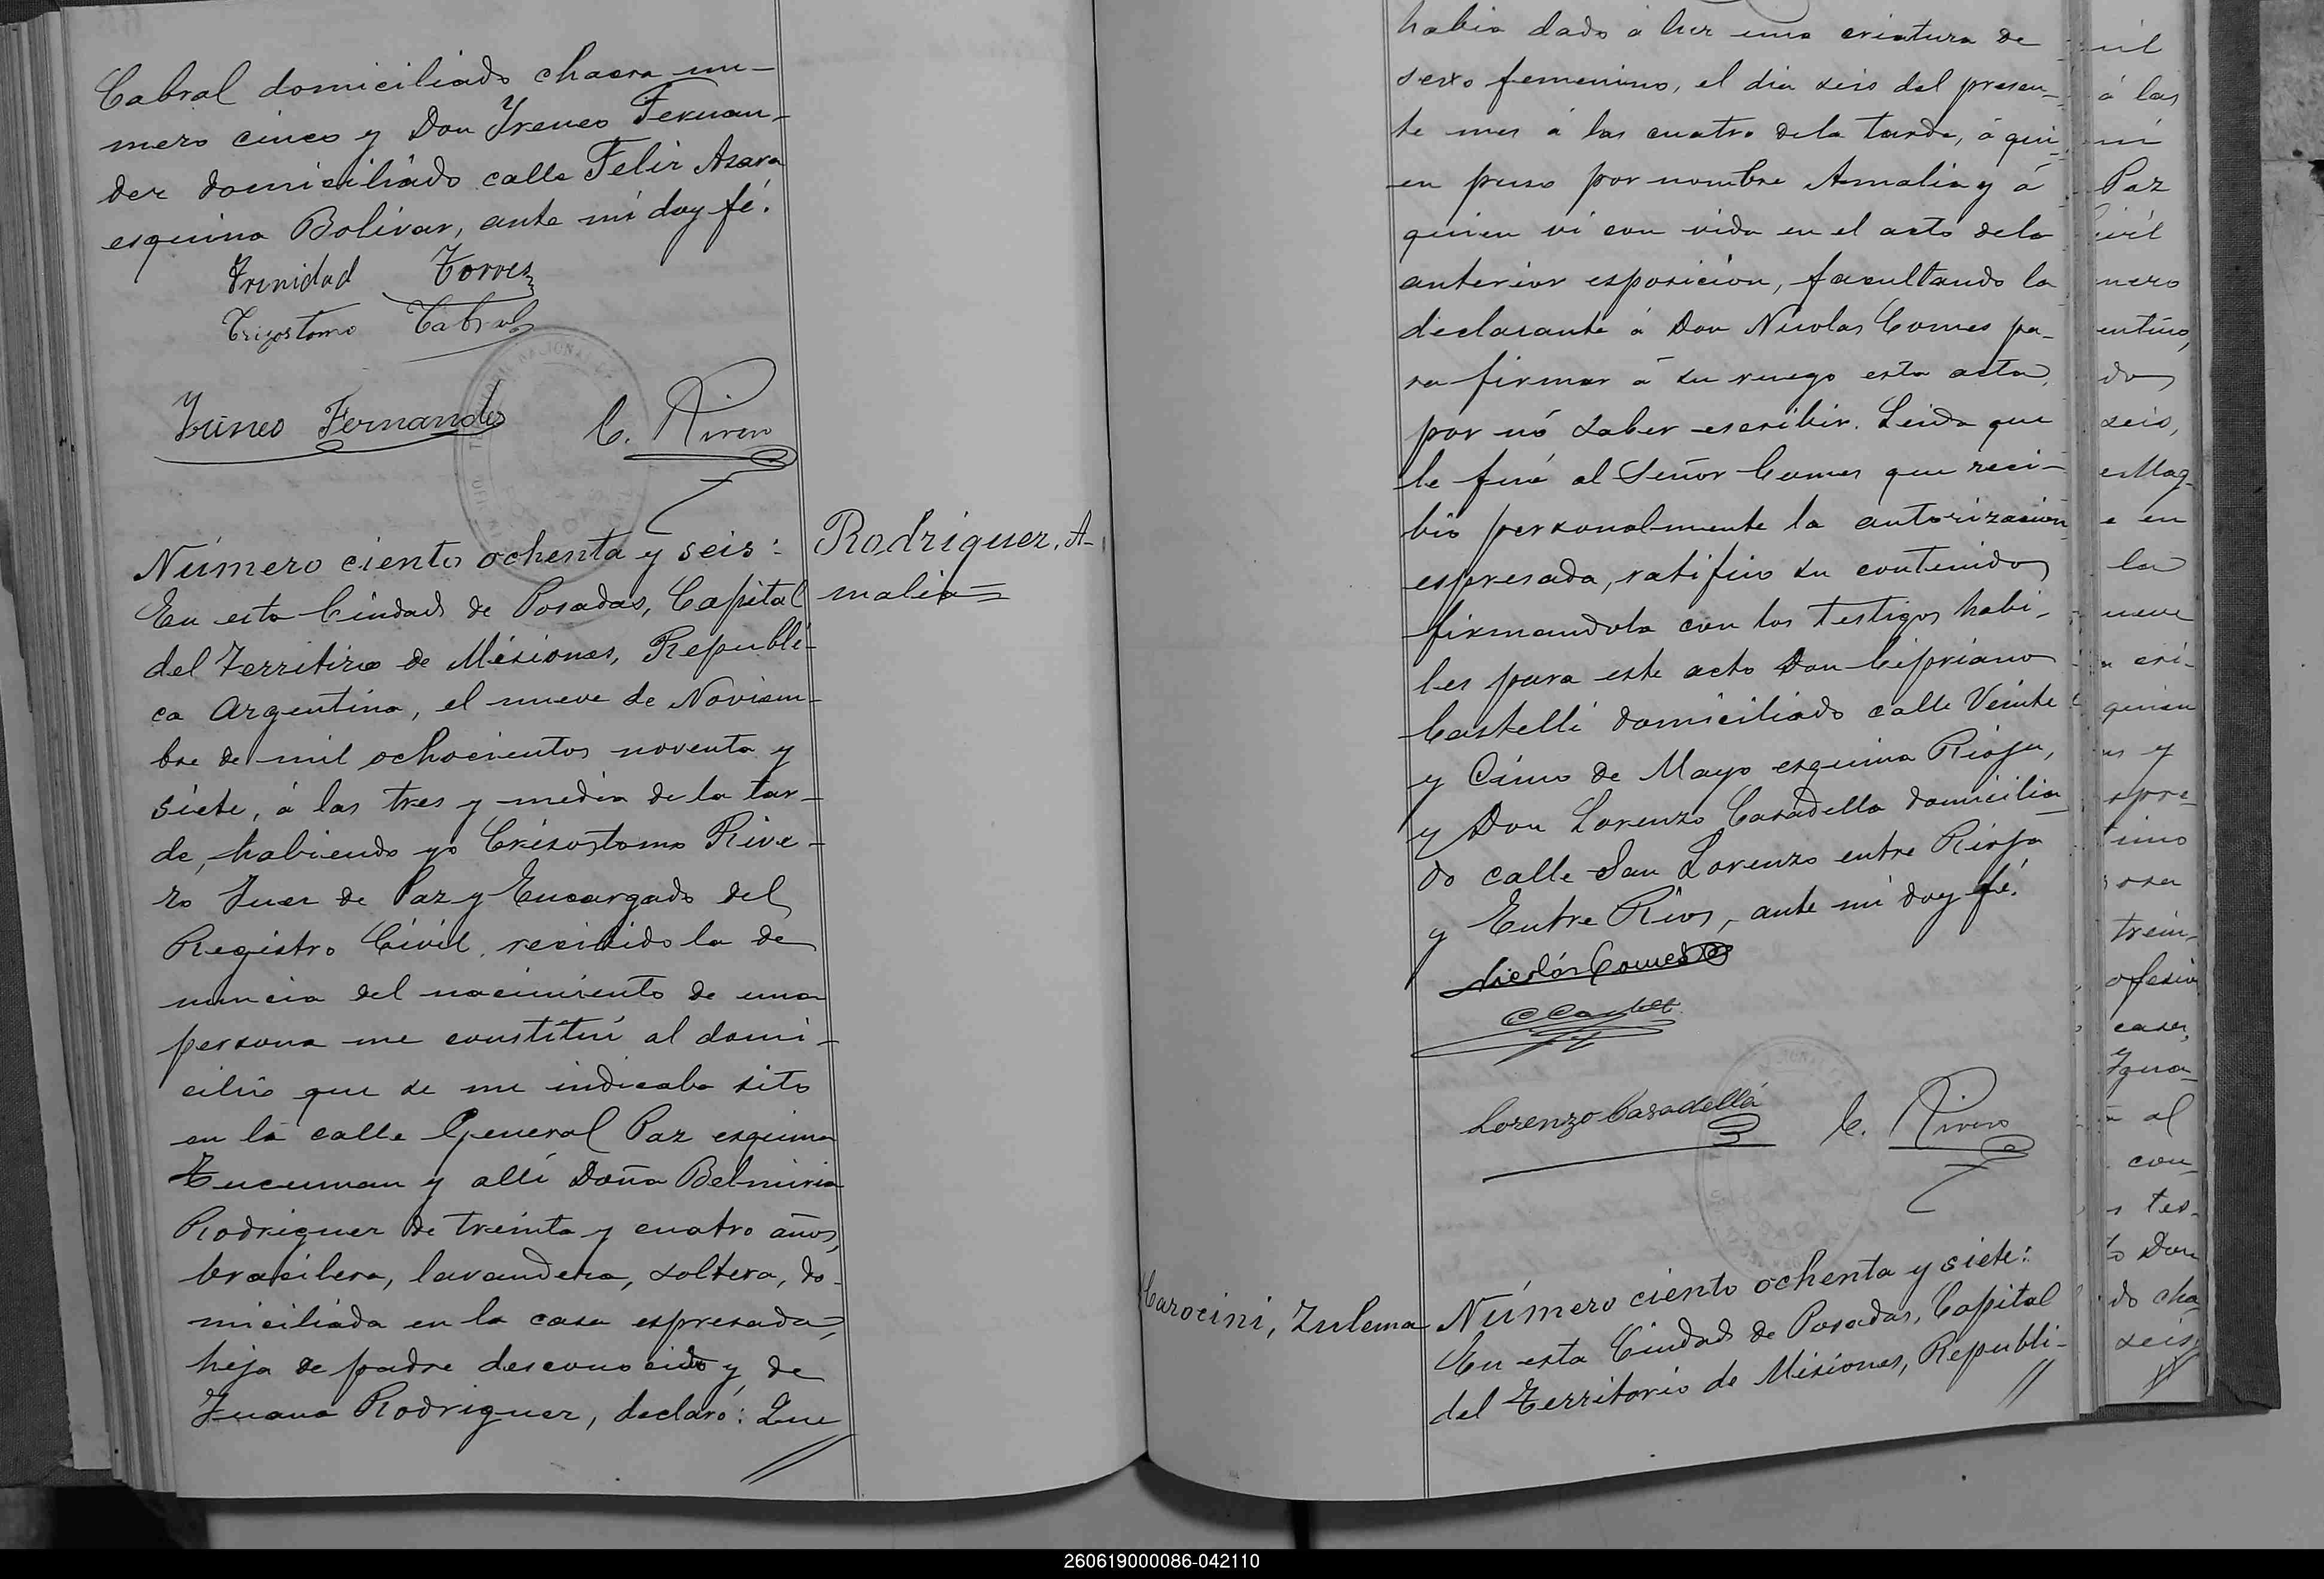 Cabral domiciliado chacra nu-
mero cinco y Don Ireneo Fernan-
dez domiciliado calle Felix Azara
esquina Bolivar, ante mi doy fé.
Trinidad Torres
Crizostomo Cabral
Irineo Fernandez C. Rivero
Número ciento ochenta y seis:
Rodriguez, A-
malia=
En esta Ciudad de Posadas, Capital
del Territirio de Misiones, Republi-
ca Argentina, el nueve de Noviem-
bre de mil ochocientos noventa y
siete, á las tres y media de la tar-
de, habiendo yo Crisostomo Rive-
ro Juez de Paz y Encargado del
Registro Civil, recibido la de
nuncia del nacimiento de una
persona me constitui al domi-
cilio que se me indicaba sito
en la calle General Paz esquina
Tucuman y allí Doña Belmiria
Rodriguez de treinta y cuatro años,
brasilera, lavandera, soltera, do-
miciliada en la casa espresada,
hija de padre desconocido y de
Juana Rodriguez, declaró: Que
//
habia dado á luz una criatura de
sexo femenino, el dia seis del presen-
te mes á las cuatro de la tarde, á qui-
en puso por nombre Amalia y á
quien vi con vida en el acto de la
anterior esposicion, facultando la
declarante á Don Nicolas Comes pa-
ra firmar á su ruego esta acta,
por nó saber escribir. Leida que
le fué al Señor Comes que reci-
bió personalmente la autorizacion
espresada, ratificó su contenido
firmandola con los testigos habi-
les para este acto Don Cipriano
Castelli domiciliado calle Veinte
y Cinco de Mayo esquina Rioja,
y Don Lorenzo Casadella domicilia-
do calle San Lorenzo entre Rioja
y Entre Rios, ante mi doy fé.
Nicolás Comes
C Castelli
Lorenzo Casadellá C. Rivero
Carocini, Zulema
Número ciento ochenta y siete:
En esta Ciudad de Posadas, Capital
del Territorio de Misiones, Republi-
//
á las
mi
Paz
ivil
nero
entino,
do
seis,
e en
la
nueve
n cri-
quien
as y
spre-
timo
trein-
ofesion
casa,
Igua-
n al
con
s tes-
to Don
do cha
seis,
//
260619000086-042110